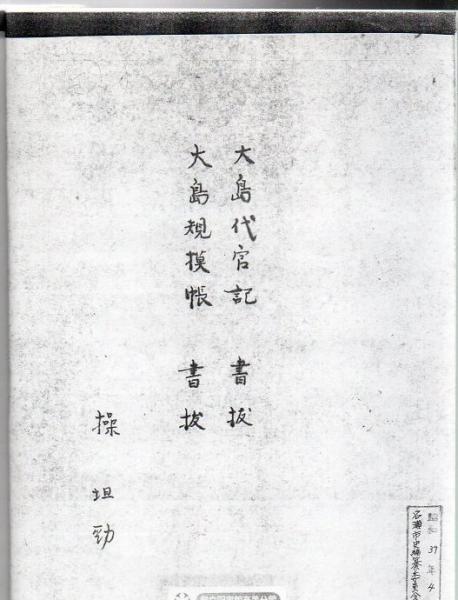 大島代官記　書抜
大島規摸帳　書抜
操　坦勁
昭和37年4
名瀬市史編纂委員会